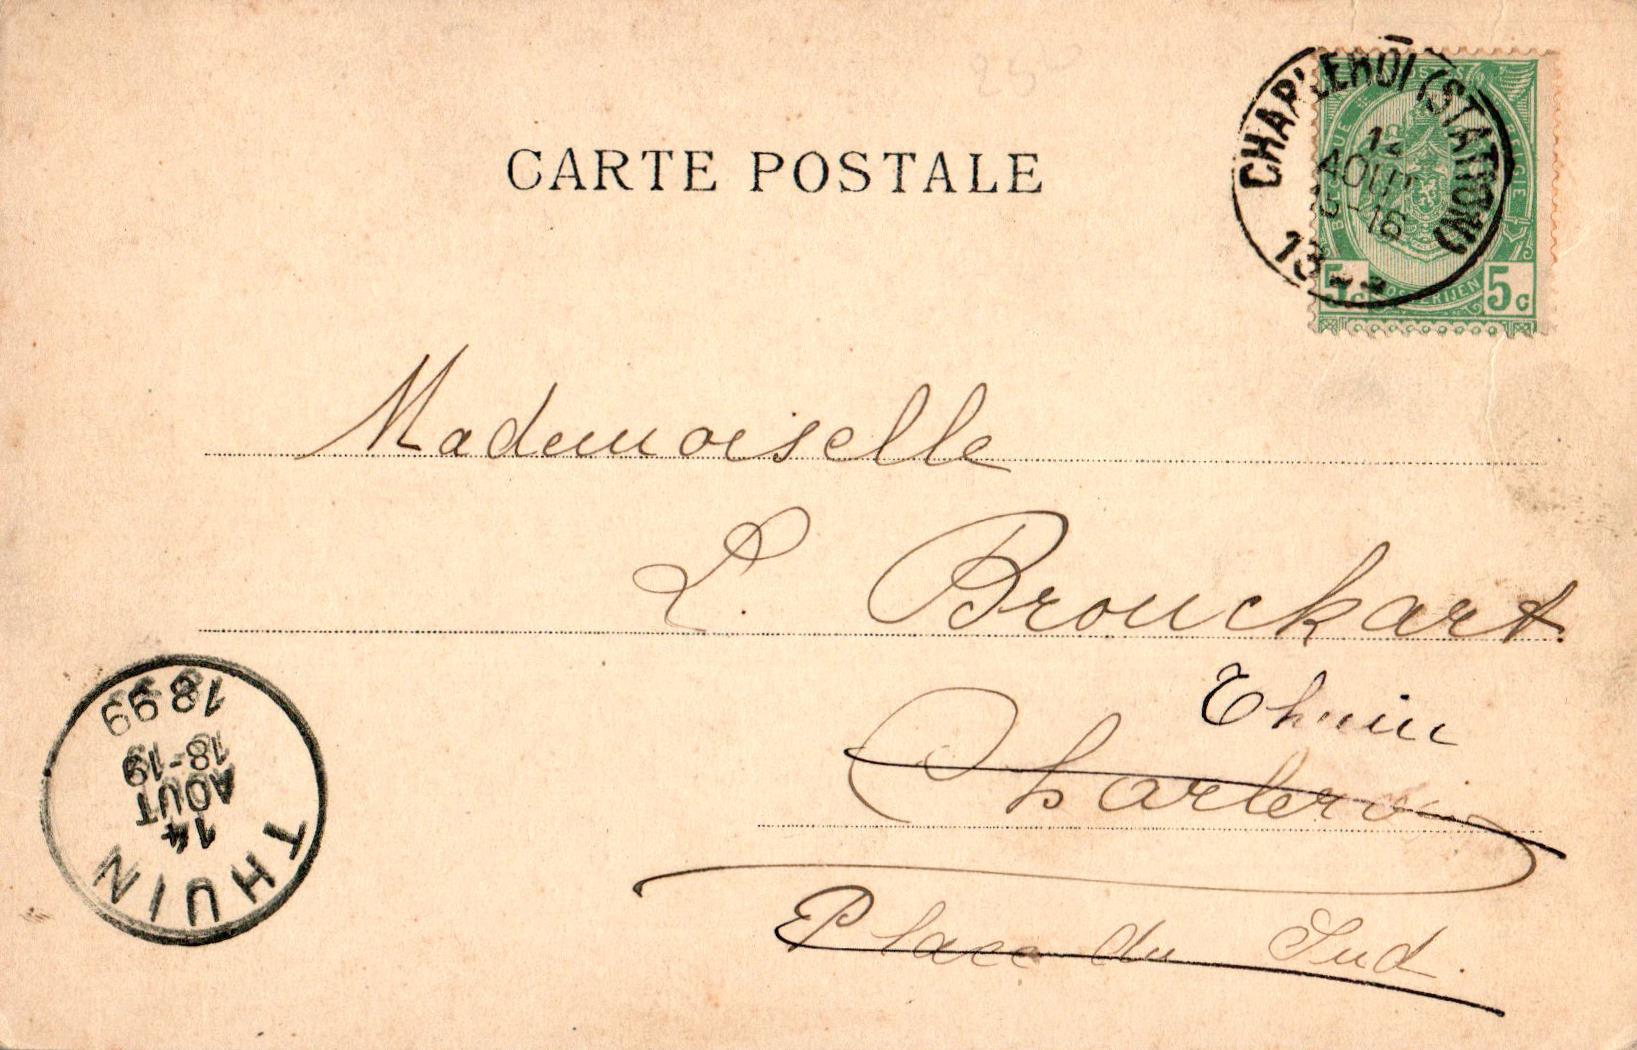 CARTE POSTALE
CHARLEROI (STATION)
12
AOUT
15-16
POSTES
BELGIQUE
BELGIE
POSTERIJEN
5c 5c
Mademoiselle
L. Brouckart.
Thuin
Charleroi
Place du Sud.
1899
18-19
AOUT
14
THUIN